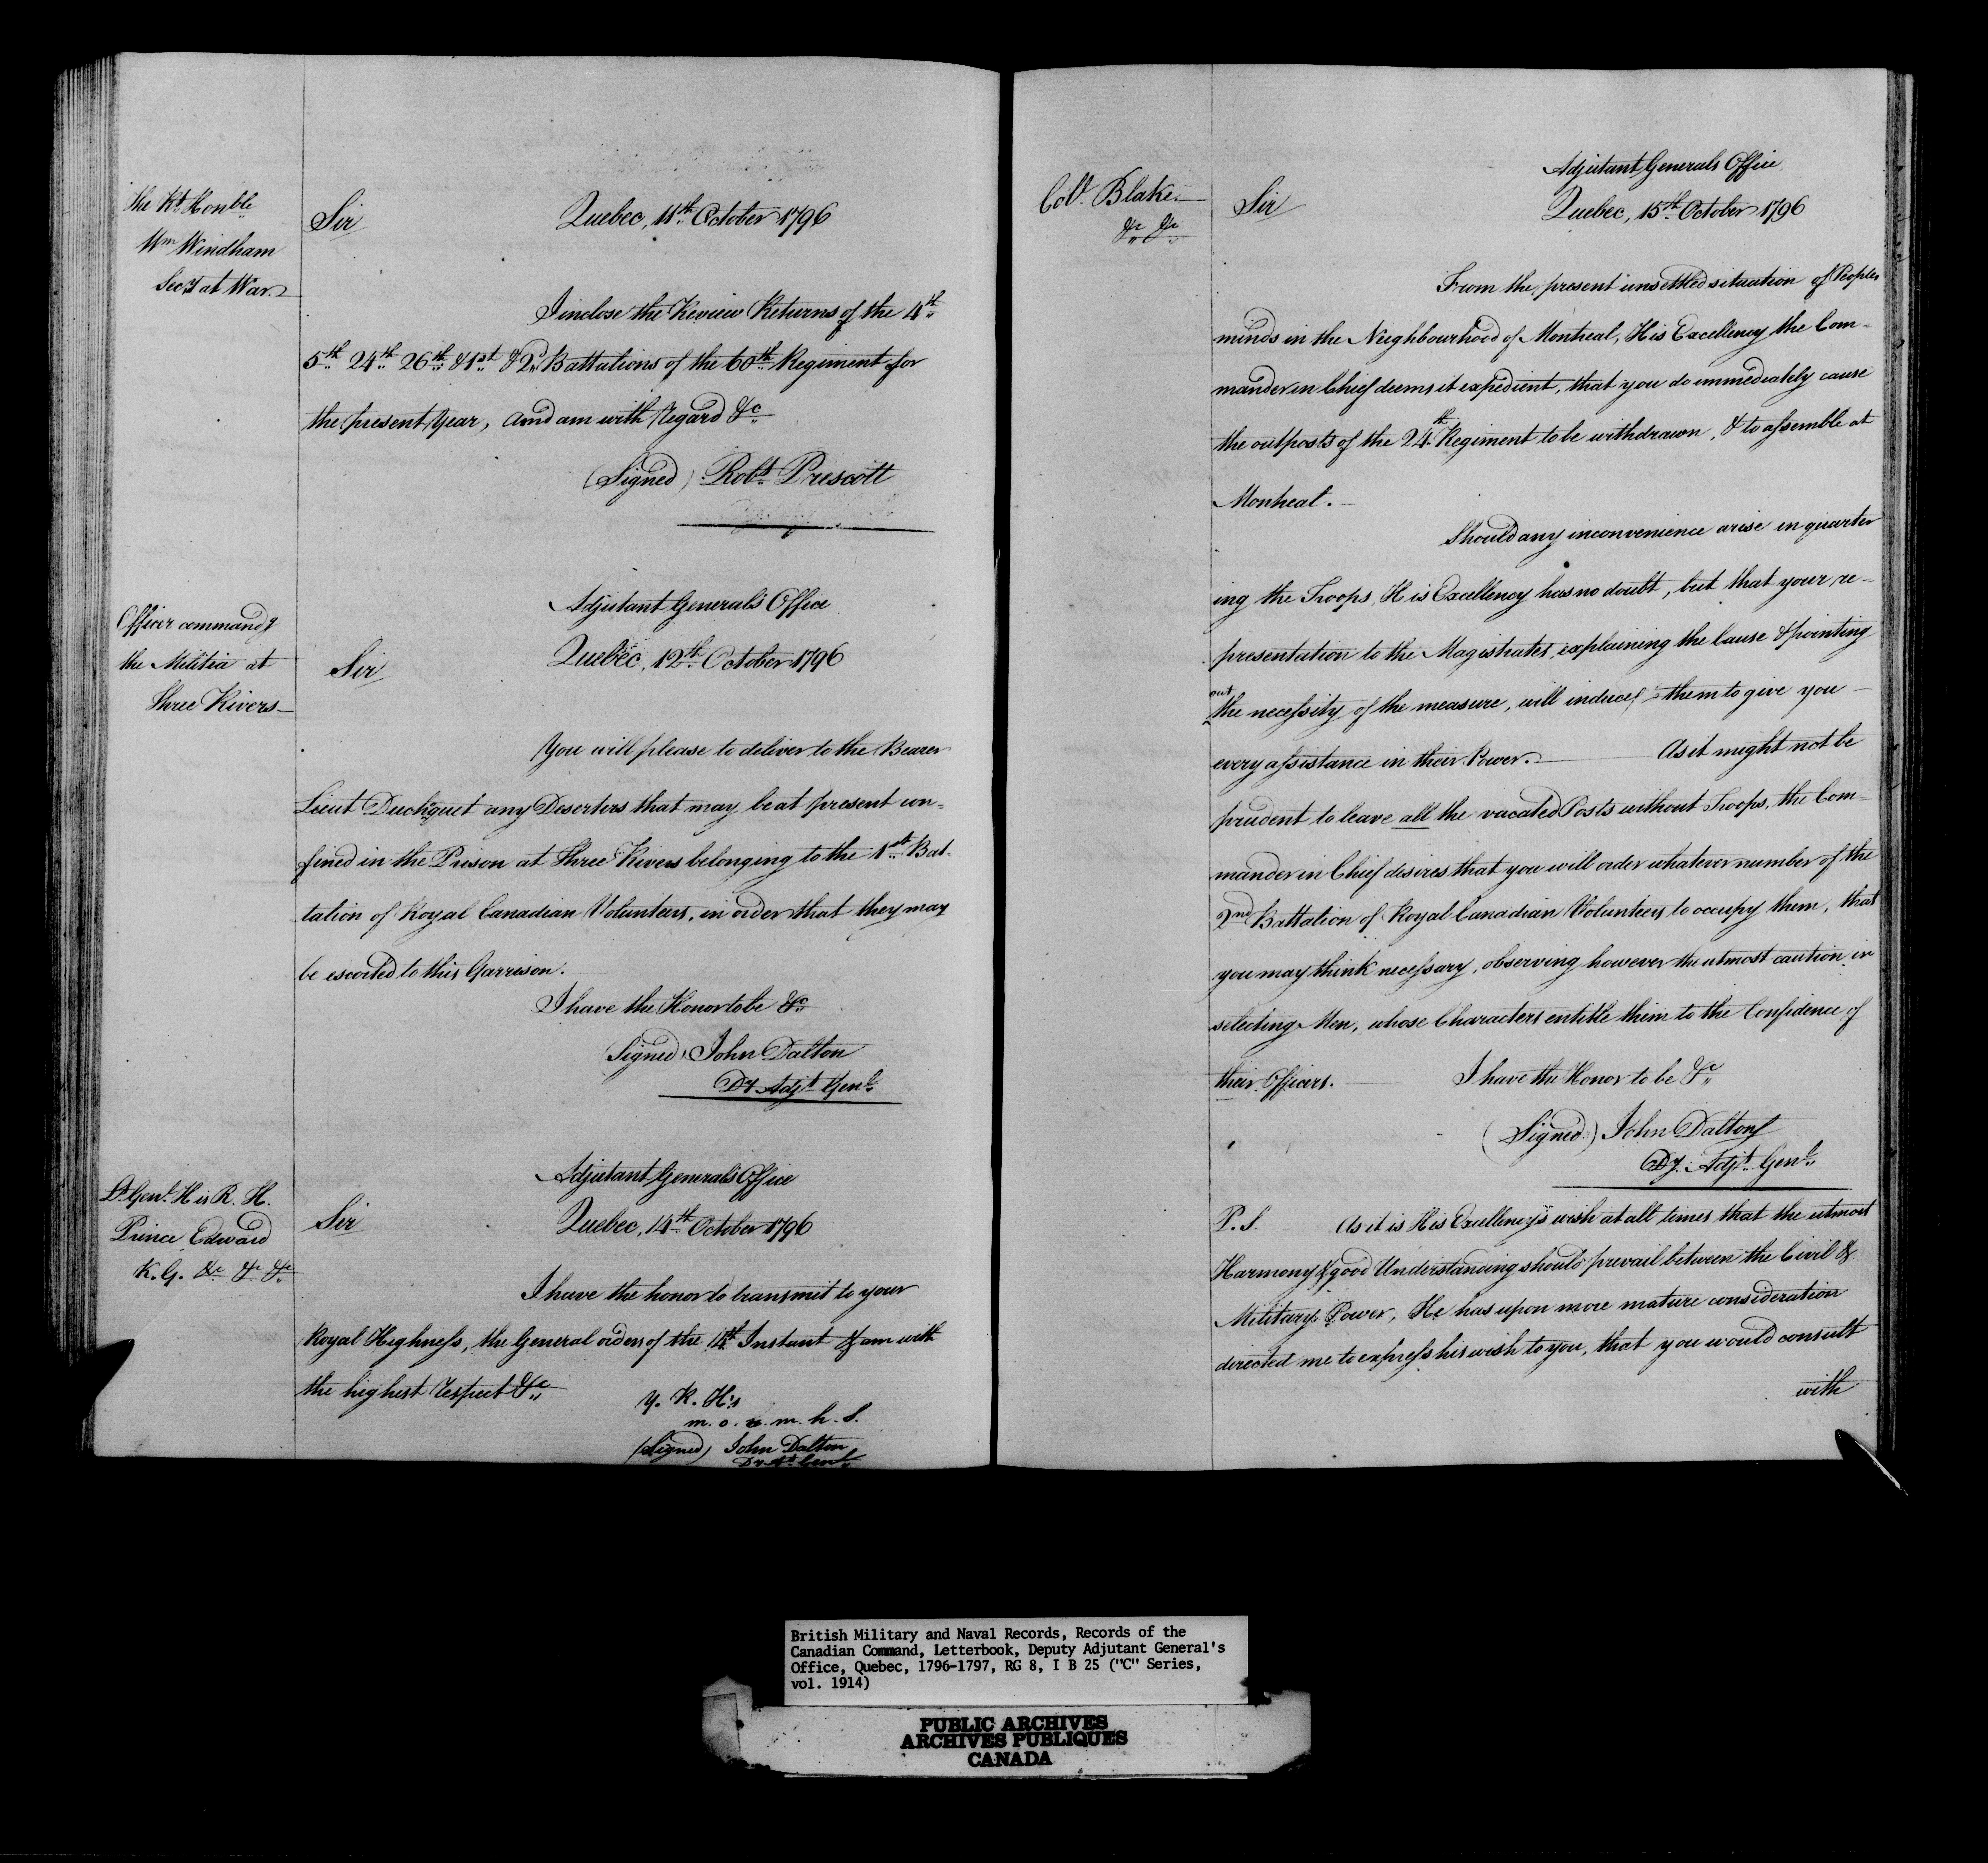 The Rt. Honble
Wm Windham
Secy at War.
Sir
Quebec, 11th October 1796
I inclose the Review Returns of the 4th
5th 24th 26th & 1st & 2d Battalions of the 60th Regiment for
the present Year, and am with Regard &c
(Signed) Robt Prescott
Officer commandg
the Militia at
Three Rivers
Adjutant General's Office
Sir
Quebec, 12th October 1796
You will please to deliver to the Bearer
Lieut Duchquet any Deserters that may be at present con=
fined in the Prison at Three Rivers belonging to the 1st Bat-
talion of Royal Canadian Volunteers, in order that they may
be escorted to this Garrison.
I have the Honor to be &c
(Signed) John Dalton
Dy Adjt Genl.
Lt Genl. His R. H.
Prince Edward
K. G. &c &c &c
Adjutant General's Office
Sir
Quebec, 14th October 1796
I have the honor to transmit to your
Royal Highness, the General orders of the 14th Instant & am with
the highest respect &c
Y. R. H's
m. o. & m. h. S.
(Signed) John Dalton
Dy At Genl.
Coll. Blake
&c &c
Adjutant Generals Office
Sir
Quebec, 15th October 1796
From the present unsettled situation of Peoples
minds in the Neighbourhood of Montreal, His Excellency the Com=
mander in Chief deems it expedient, that you do immediately cause
the outposts of the 24th Regiment to be withdrawn, & to assemble at
Montreal.
Should any inconvenience arise in quarter
ing the Troops, His Excellency has no doubt, but that your re-
presentation to the Magistrates, explaining the Cause & pointing
out
the necessity of the measure, will induce them to give you
every assistance in their Power. As it might not be
prudent to leave all the vacated Posts without Troops, the Com=
mander in Chief desires that you will order whatever number of the
2nd Battalion of Royal Canadian Volunteers to occupy them, that
you may think necessary, observing however the utmost caution in
selecting Men, whose Characters entitle them to the Confidence of
their Officers. I have the Honor to be &c
(Signed) John Dalton
Dy. Adjt Genl.
P. S. As it is His Excellency's wish at all times that the utmost
Harmony & good Understanding should prevail between the Civil &
Military Power, He has upon more mature consideration
directed me to express his wish to you, that you would consult
with
British Military and Naval Records, Records of the
Canadian Command, Letterbook, Deputy Adjutant General's
Office, Quebec, 1796-1797, RG 8, I B 25 ("C" Series,
vol. 1914)
PUBLIC ARCHIVES
ARCHIVES PUBLIQUES
CANADA